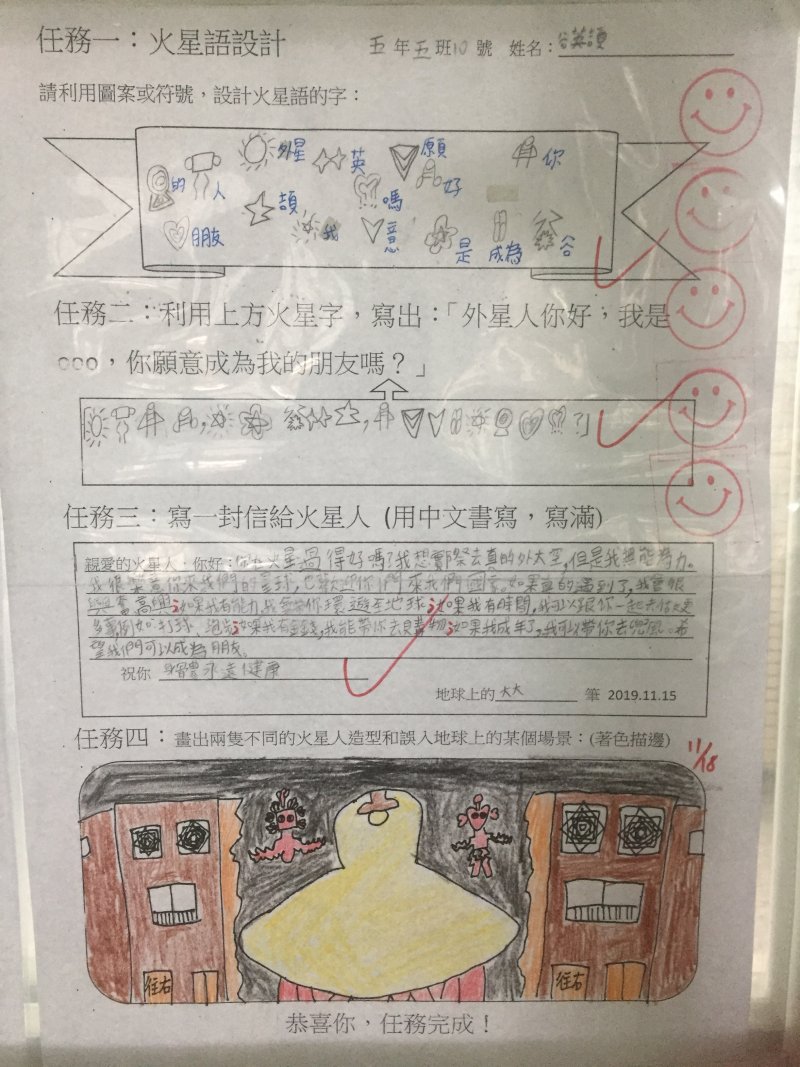 任務一：火星語設計
五年五班10號 姓名：谷英頡
請利用圖案或符號，設計火星語的字：
外星 英 願 你
的 人 頡 嗎 好
朋友 我 意 是 成為 谷
任務二：利用上方火星字，寫出：「外星人你好，我是
○○○，你願意成為我的朋友嗎？」
任務三：寫一封信給火星人 (用中文書寫，寫滿)
親愛的火星人：你好：你在火星過得好嗎?我想實際去真的外太空，但是我無能為力。
我很樂意你來我們的星球，也歡迎你們來我們國家。如果真的遇到了，我會很
興奮高興；如果我有能力，我會帶你環遊全地球；如果我有時間，我可以跟你一起去做更
多事例如:打球、跑步；如果我有金錢，我能帶你去買畫物；如果我成年了，我可以帶你去兜風。希
望我們可以成為朋友。
祝你 身體永遠健康
地球上的 大大 筆 2019.11.15
任務四：畫出兩隻不同的火星人造型和誤入地球上的某個場景：(著色描邊)
11/18
往右 往右
恭喜你，任務完成！